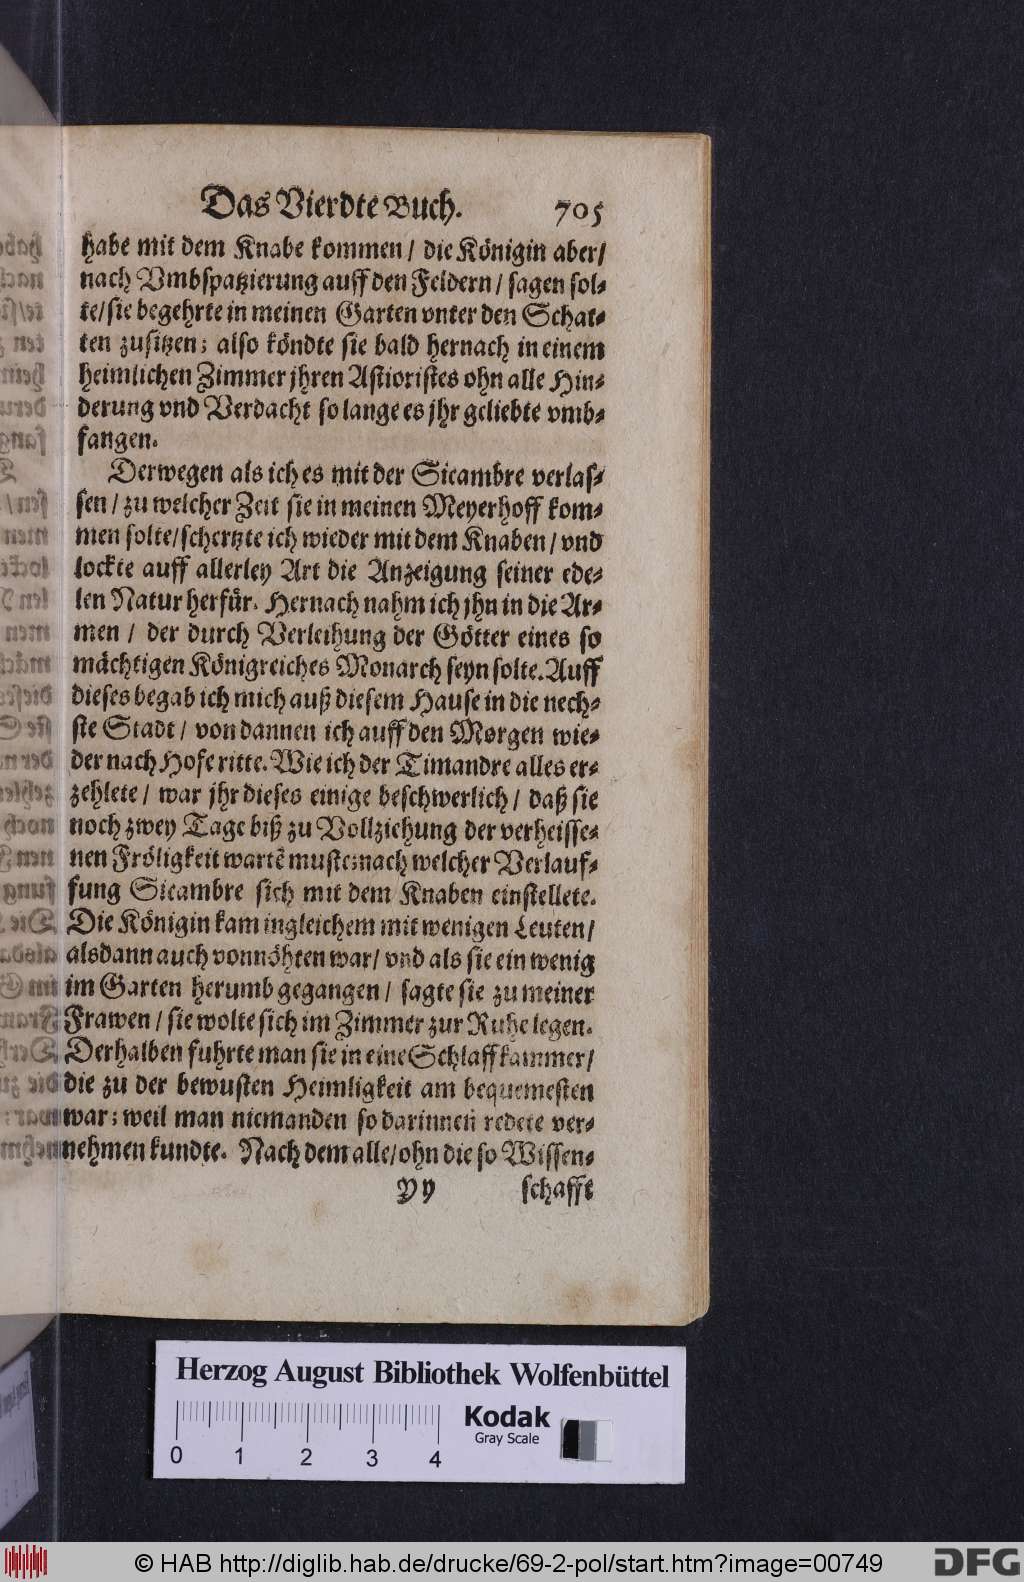 Das Vierdte Buch. 705
habe mit dem Knabe kommen / die Königin aber /
nach Vmbspatzierung auff den Feldern / sagen sol-
te / sie begehrte in meinen Garten vnter den Schat-
ten zusitzen; also köndte sie bald hernach in einem
heimlichen Zimmer jhren Astioristes ohn alle Hin-
derung vnd Verdacht so lange es jhr geliebte vmb-
fangen.
Derwegen als ich es mit der Sicambre verlas-
sen / zu welcher Zeit sie in meinen Meyerhoff kom-
men solte / schertzte ich wieder mit dem Knaben / vnd
lockte auff allerley Art die Anzeigung seiner ede-
len Natur herfür. Hernach nahm ich jhn in die Ar-
men / der durch Verleihung der Götter eines so
mächtigen Königreiches Monarch seyn solte. Auff
dieses begab ich mich auß diesem Hause in die nech-
ste Stadt / von dannen ich auff den Morgen wie-
der nach Hofe ritte. Wie ich der Timandre alles er-
zehlete / war jhr dieses einige beschwerlich / daß sie
noch zwey Tage biß zu Vollziehung der verheisse-
nen Fröligkeit wartẽ muste; nach welcher Verlauf-
fung Sicambre sich mit dem Knaben einstellete.
Die Königin kam ingleichem mit wenigen Leuten /
alsdann auch vonnöhten war / vnd als sie ein wenig
im Garten herumb gegangen / sagte sie zu meiner
Frawen / sie wolte sich im Zimmer zur Ruhe legen.
Derhalben fuhrte man sie in eine Schlaffkammer /
die zu der bewusten Heimligkeit am bequemesten
war; weil man niemanden so darinnen redete ver-
nehmen kundte. Nach dem alle / ohn die so Wissen-
Yy schafft
Herzog August Bibliothek Wolfenbüttel
Kodak
Gray Scale
0 1 2 3 4
© HAB http://diglib.hab.de/drucke/69-2-pol/start.htm?image=00749
DFG